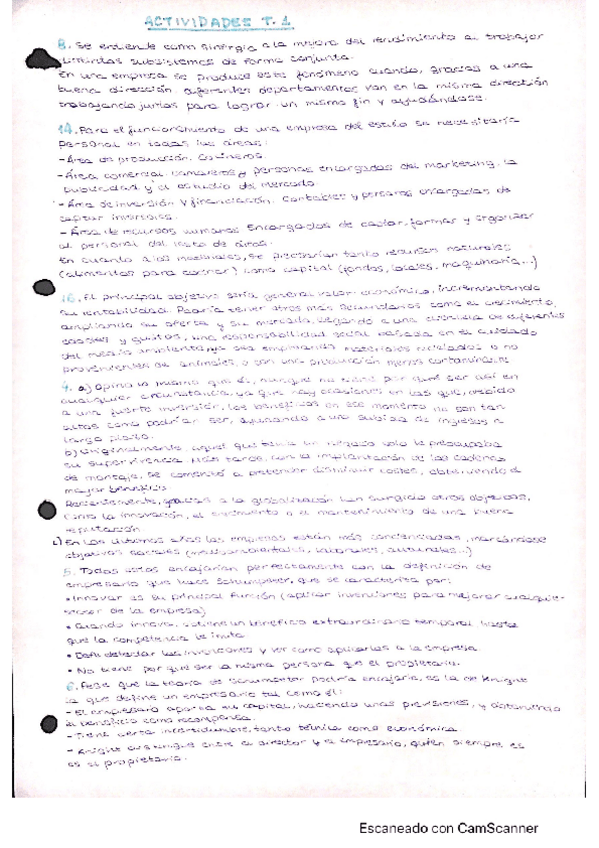 ACTIVIDADES T. 1
8. Se entiende como sinergia a la mejora del rendimiento al trabajar
distintos subsistemas de forma conjunta.
En una empresa se produce este fenómeno cuando, gracias a una
buena dirección diferentes departamentos van en la misma dirección
trabajando juntos para lograr un mismo fin y ayudándose.
14. Para el funcionamiento de una empresa del estilo se necesitaría
personal en todas las áreas:
- Área de producción. Cocineros.
- Área comercial. Camareros y personas encargadas del marketing, la
publicidad y el estudio del mercado.
- Área de inversión y financiación. Contables y personas encargadas de
captar inversores.
- Área de recursos humanos. Encargados de captar, formar y organizar
al personal del resto de áreas.
En cuanto a los materiales, se precisarían tanto recursos naturales
(alimentos para cocinar) como capital (fondos, locales, maquinaria...)
16. El principal objetivo sería generar valor económico, incrementando
su rentabilidad. Podría tener otros más secundarios como el crecimiento,
ampliando su oferta y su mercado, llegando a una clientela de diferentes
edades y gustos, una responsabilidad social basada en el cuidado
del medio ambiente, ya sea empleando materiales reciclados o no
provenientes de animales, o con una producción menos contaminante
4. a) Opino lo mismo que él, aunque no tiene por qué ser así en
cualquier circunstancia, ya que hay ocasiones en las que, debido
a una fuerte inversión, los beneficios en ese momento no son tan
altos como podrían ser, ayudando a una subida de ingresos a
largo plazo.
b) Originalmente, aquel que tenía un negocio solo le preocupaba
su supervivencia. Más tarde, con la implantación de las cadenas
de montaje, se comenzó a pretender disminuir costes, obteniendo el
mayor beneficio.
Recientemente, gracias a la globalización han surgido otros objetivos,
como la innovación, el crecimiento o el mantenimiento de una buena
reputación
c) En los últimos años las empresas están más concienciadas, marcándose
objetivos sociales (medioambientales, laborales, culturales...)
5. Todos estos encajarían perfectamente con la definición de
empresario que hace Schumpeter, que se caracteriza por:
• Innovar es su principal función (aplicar invenciones para mejorar cualquier
sector de la empresa)
• Cuando innova, obtiene un beneficio extraordinario temporal, hasta
que la competencia le imita
• Debe detectar las invenciones y ver como aplicarlas a la empresa
• No tiene por que ser la misma persona que el propietario.
6. que la teoría de podría encajarle, es la de Knight
la que define un empresario tal como él:
- El empresario aporta su capital, haciendo unas previsiones, y obteniendo
el beneficio como recompensa.
- Tiene cierta incertidumbre, tanto técnica como económica.
- Knight distingue entre el director y el empresario, quien siempre es
es el propietario.
Escaneado con CamScanner